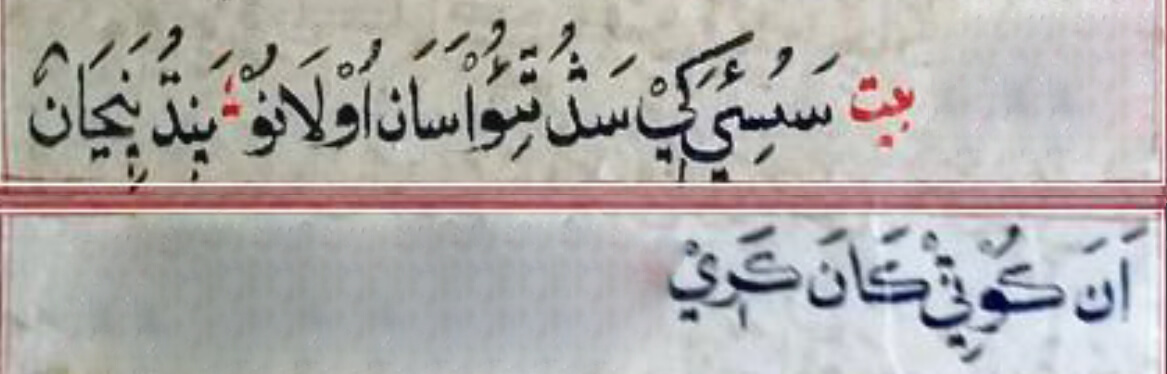 بيت سَسُئِيَ كَيْ سَڎُ تِئُوْ اسَان اُوْلَانُوْ پَنِڌُ پنِجَان
اَنَ كُوْثِيْ كَانَ كَرِيْ